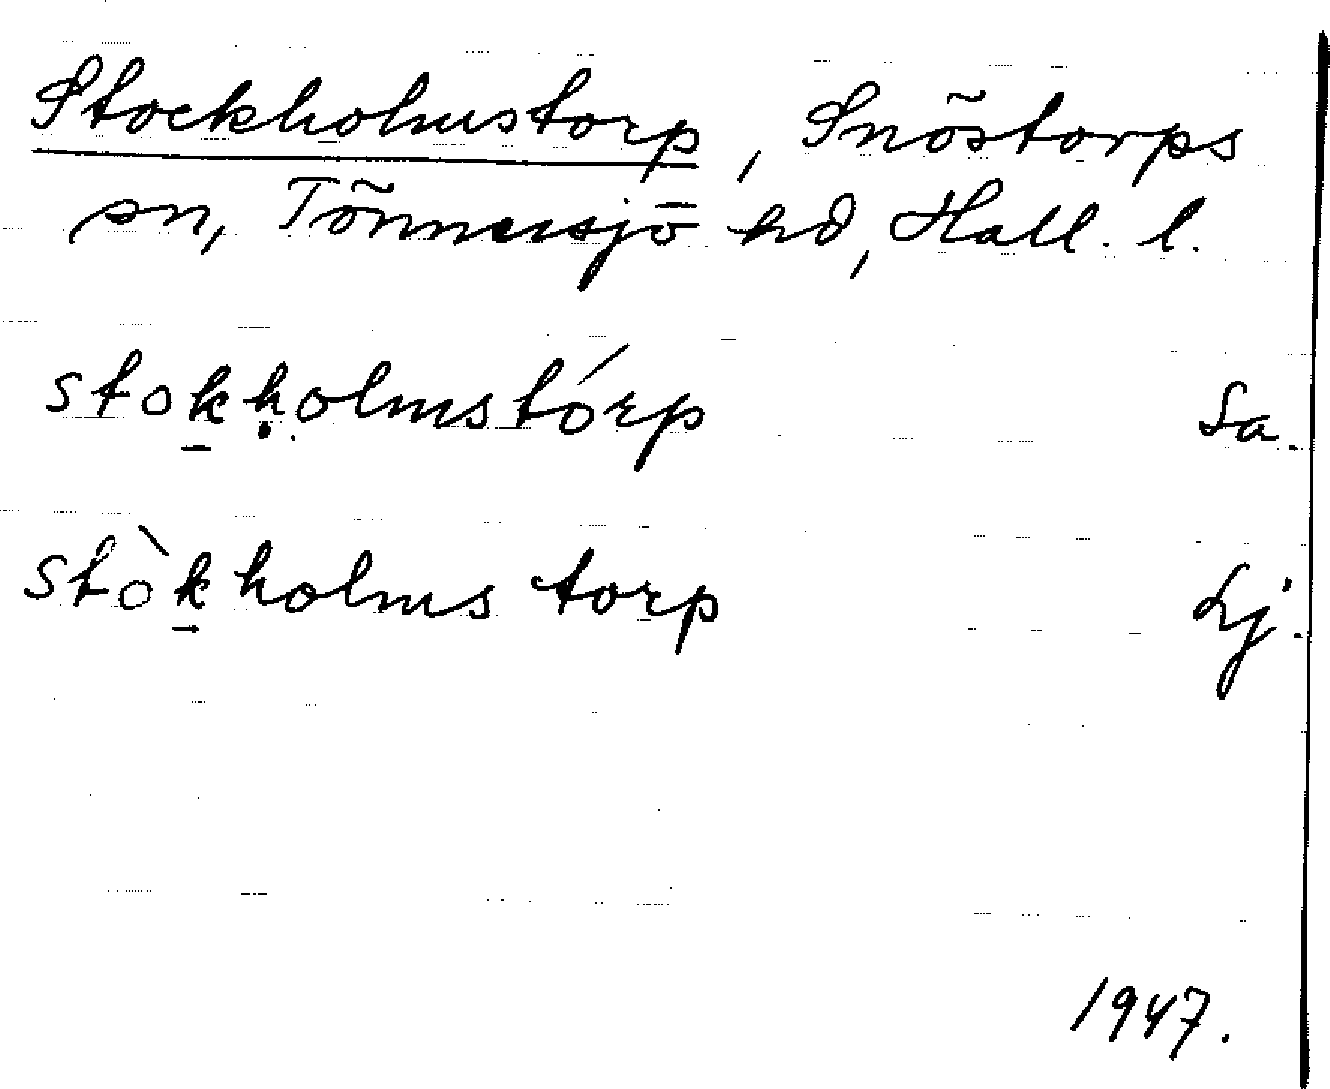 Stockholmstorp, Snöstorps
sn, Tönnersjö hd, Hall. l.
stok̠ḥolmstórp Sa.
stòk̠holms torp Lj.
1947.